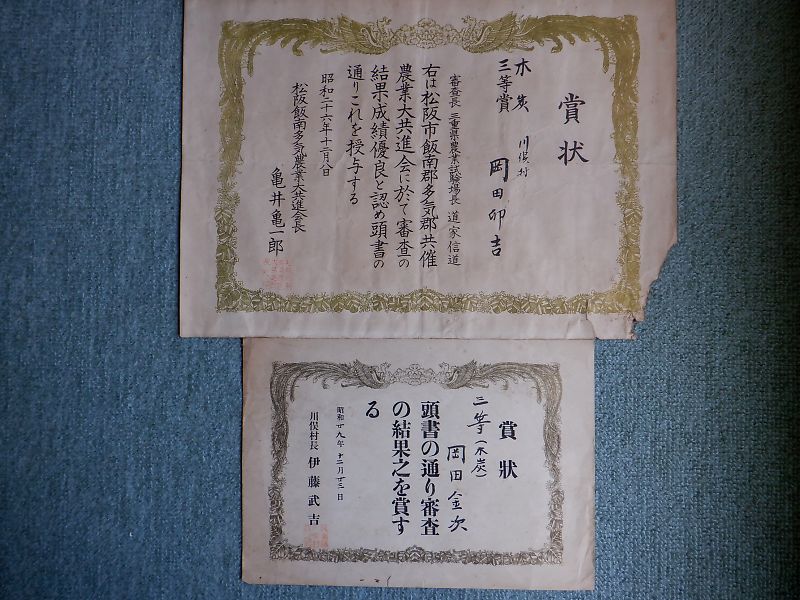 賞状
木炭 川俣村
三等賞 岡田卯吉
審査長 三重県農業試験場長 道家信道
右は松阪市飯南郡多気郡共催
農業大共進会に於て審査の
結果成績優良と認め頭書の
通りこれを授与する
昭和二十六年十二月八日
松阪飯南多気農業大共進会長
亀井亀一郎
賞狀
三等(木炭)
岡田金次
頭書の通り審査
の結果之を賞す
る
昭和廿九年十二月廿三日
川俣村長 伊藤武吉